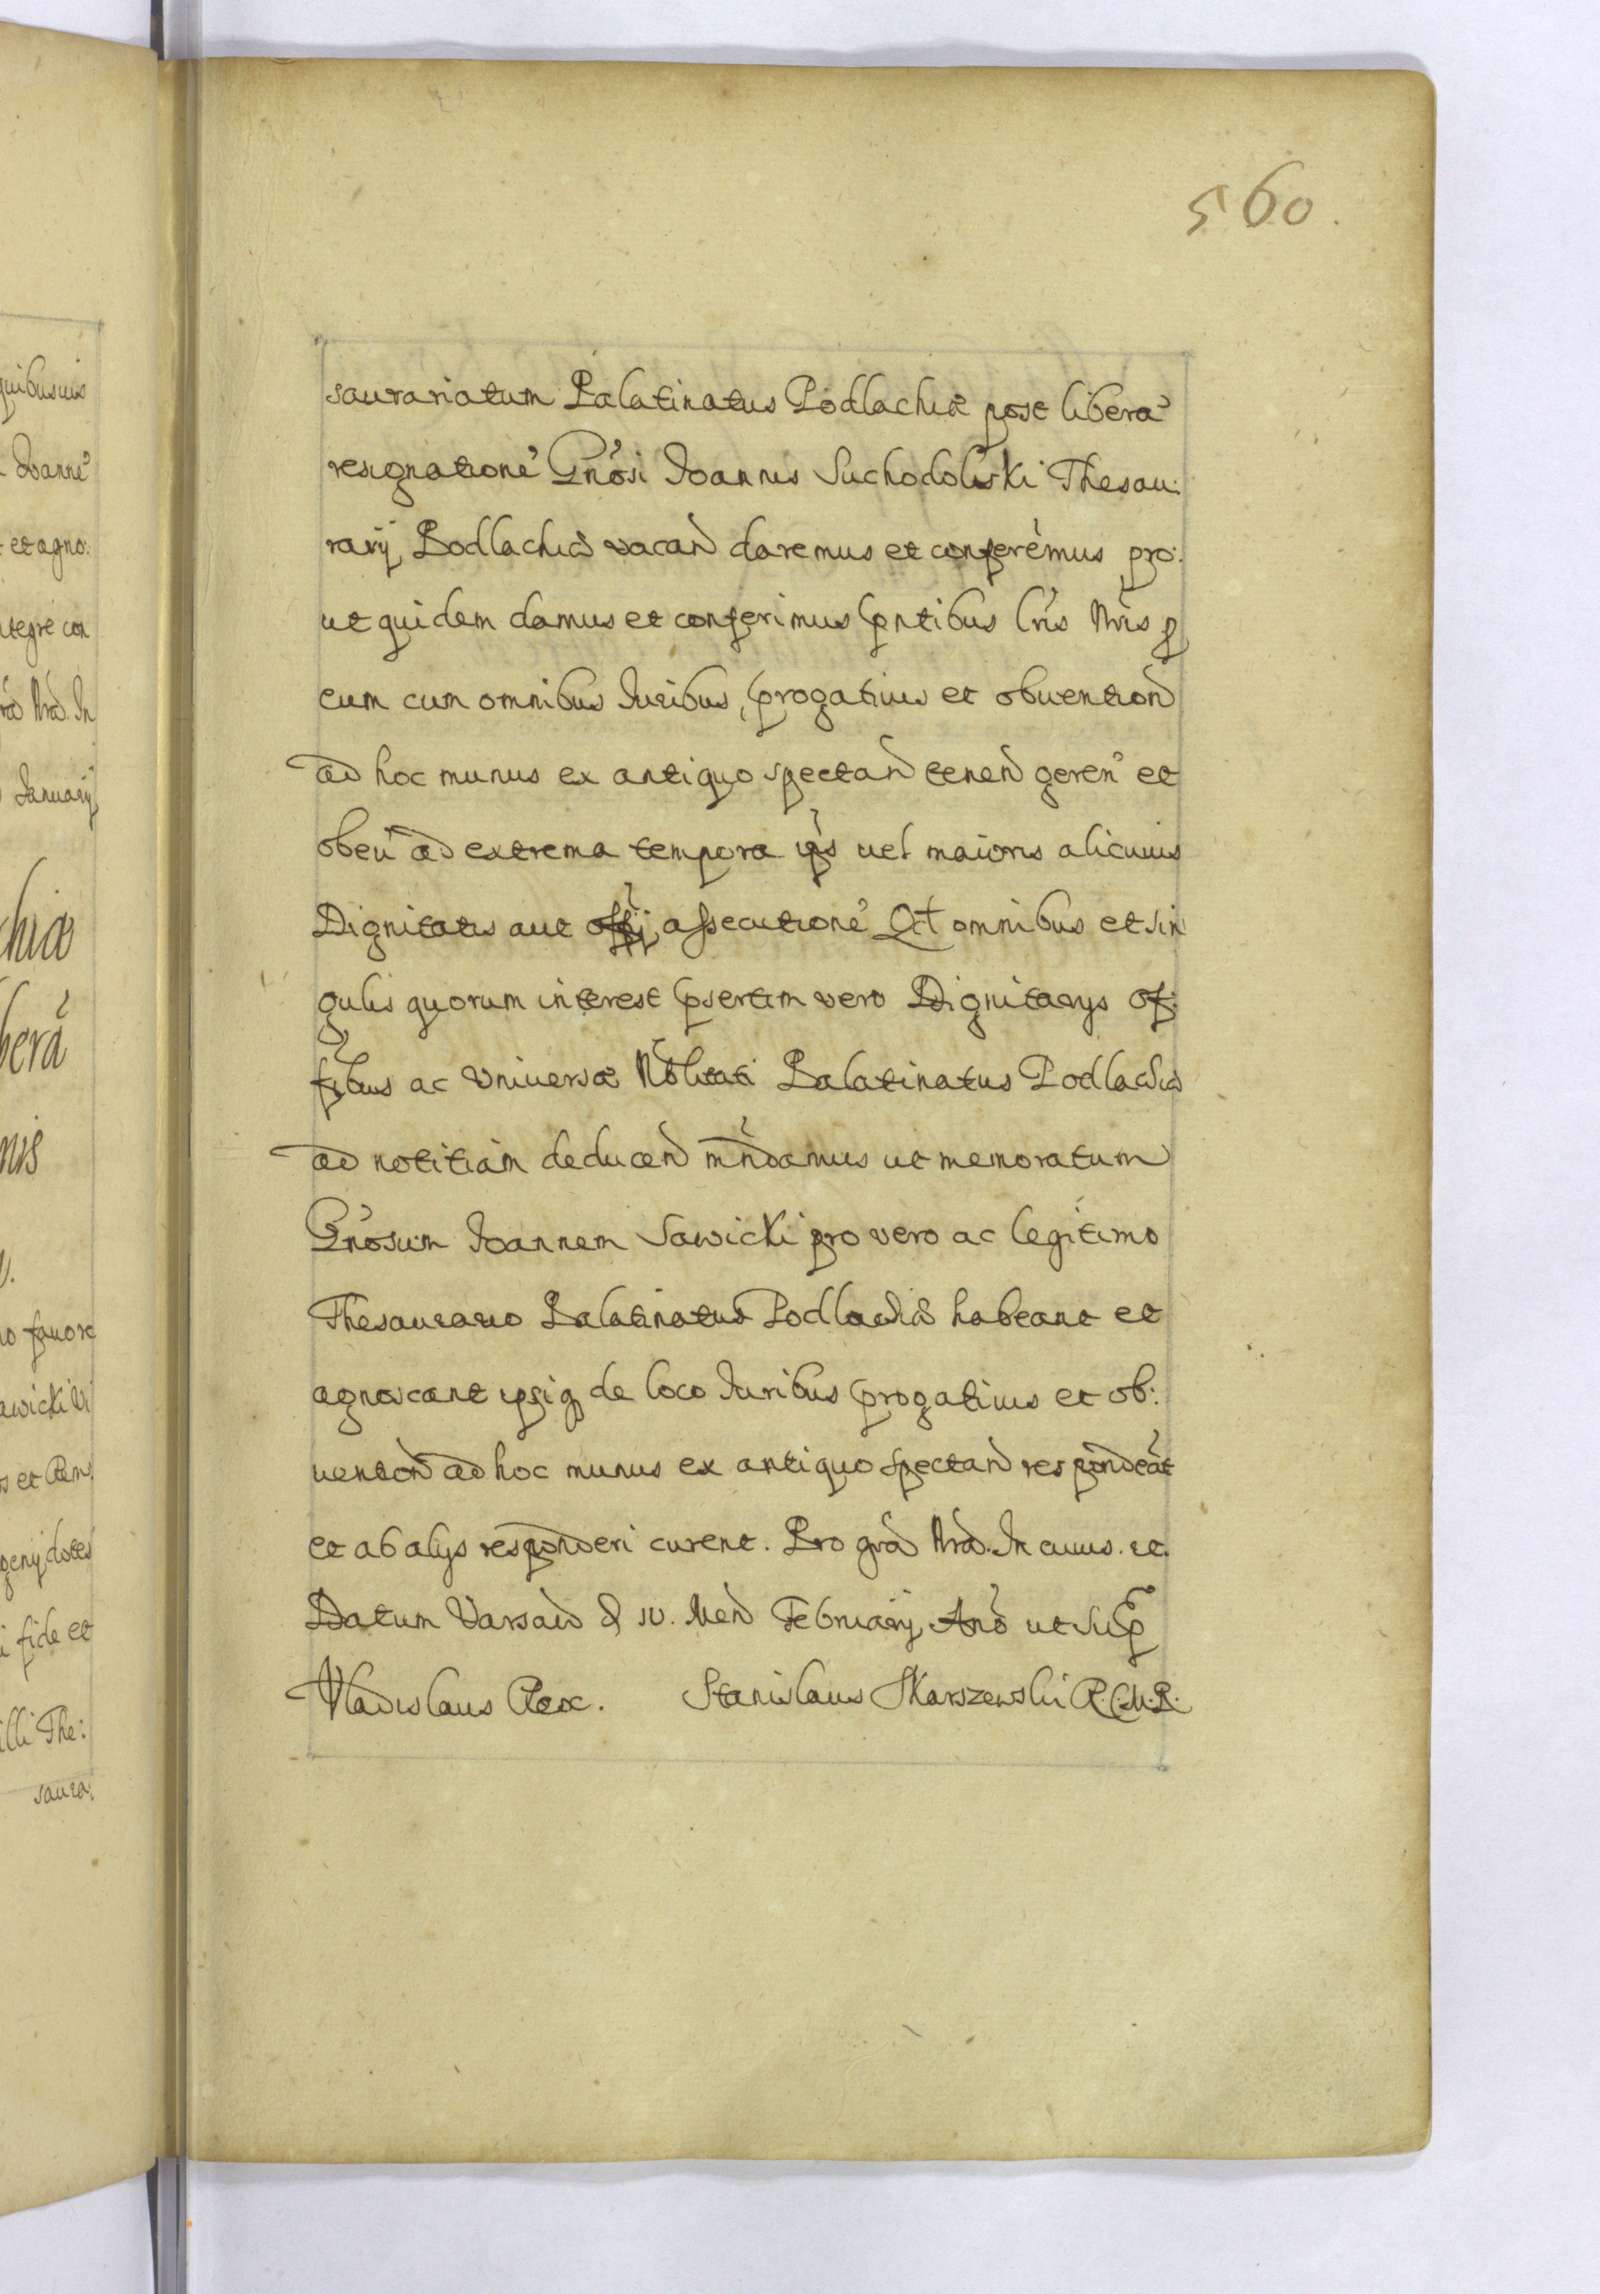 560.
saurariatum Palatinatus Podlachiæ post liberã
resignationẽ Gnõsi Joannis Suchodolski Thesau:
rarij Podlachiæ vacan̄ daremus et conferemus pro:
ut quidem damus et conferimus pntibus lrĩs Nrĩs p
eum cum omnibus Juribus, progatiuis et obuention̄
ad hoc munus ex antiquo spectan̄ tenen̄ geren̄ et
obeũ ad extrema tempora ips vel maioris alicuius
Dignitatis aut offij assecutionẽ Qd omnibus et sin
gulis quorum interest psertim vero Dignitarys of:
fibus ac Vniversæ Nobltati Palatinatus Podlachiæ
ad notitiam deducen̄ mñdamus ut memoratum
Gnõsum Joannem Sawicki pro vero ac legitimo
Thesaurario Palatinatus Podlachiæ habeant et
agnoscant ipsiq de loco Juribus progatiuis et ob:
uention̄ ad hoc munus ex antiquo spectan̄ respondeãt
et ab alys responderi curent. Pro grã Nrã. In cuius. et.
Datum Varsaw d IV. Men̄ February Anõ ut sup
Vladislaus Rex. Stanislaus Skarszewski R.C.M.P.
quibusuis
Joannẽ
et agno:
ntegre con
Nrã. In
January
chiæ
berã
nis
favore
awicki Vi
s et Rem
geny dotes
fide et
illi The:
saura: